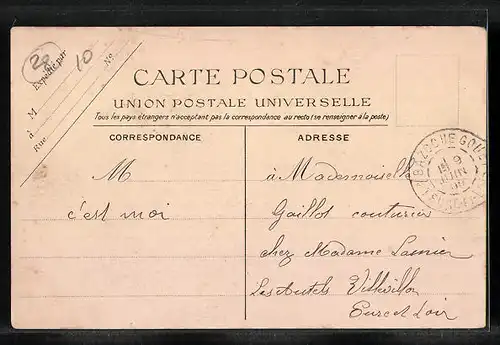 20
10
Expédié par
M
N°
à
Rue
CARTE POSTALE
UNION POSTALE UNIVERSELLE
Tous les pays étrangers n'acceptent pas la correspondance au recto (se renseigner à la poste)
CORRESPONDANCE
ADRESSE
M
c'est moi
à Mademoiselle
Gaillot couturière
chez Madame Lamier
Les Autels Villevillon
Eure et Loir
BAZOCHE GOUET
9
JUIN